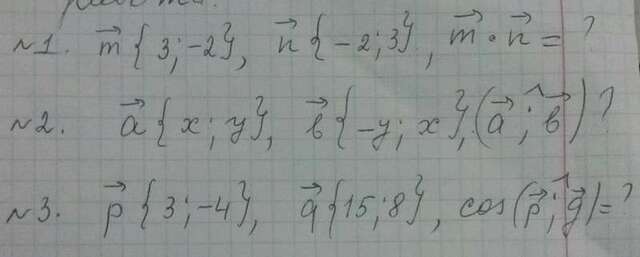 работа.
№1. m⃗ {3;-2}, n⃗ {-2;3}, m⃗ · n⃗ = ?
№2. a⃗ {x; y}, b⃗ {-y; x}, (a⃗ ^; b⃗) ?
№3. p⃗ {3;-4}, q⃗ {15;8}, cos(p⃗ ^; q⃗) = ?